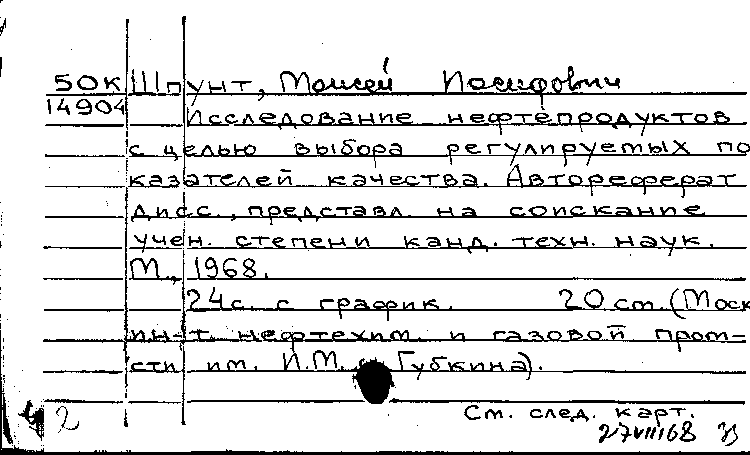 50К Шпунт, Моисей Иосифович
14904
Исследование нефтепродуктов
с целью выбора регулируемых по
казателей качества. Автореферат
дисс., представл. на соискание
учен. степени канд. техн. наук.
М., 1968.
24с. с график. 20 см. (Моск
ин-т. нефтехим. и газовой пром-
сти им. И.М. Губкина).
См. след. карт.
2 27VIII68